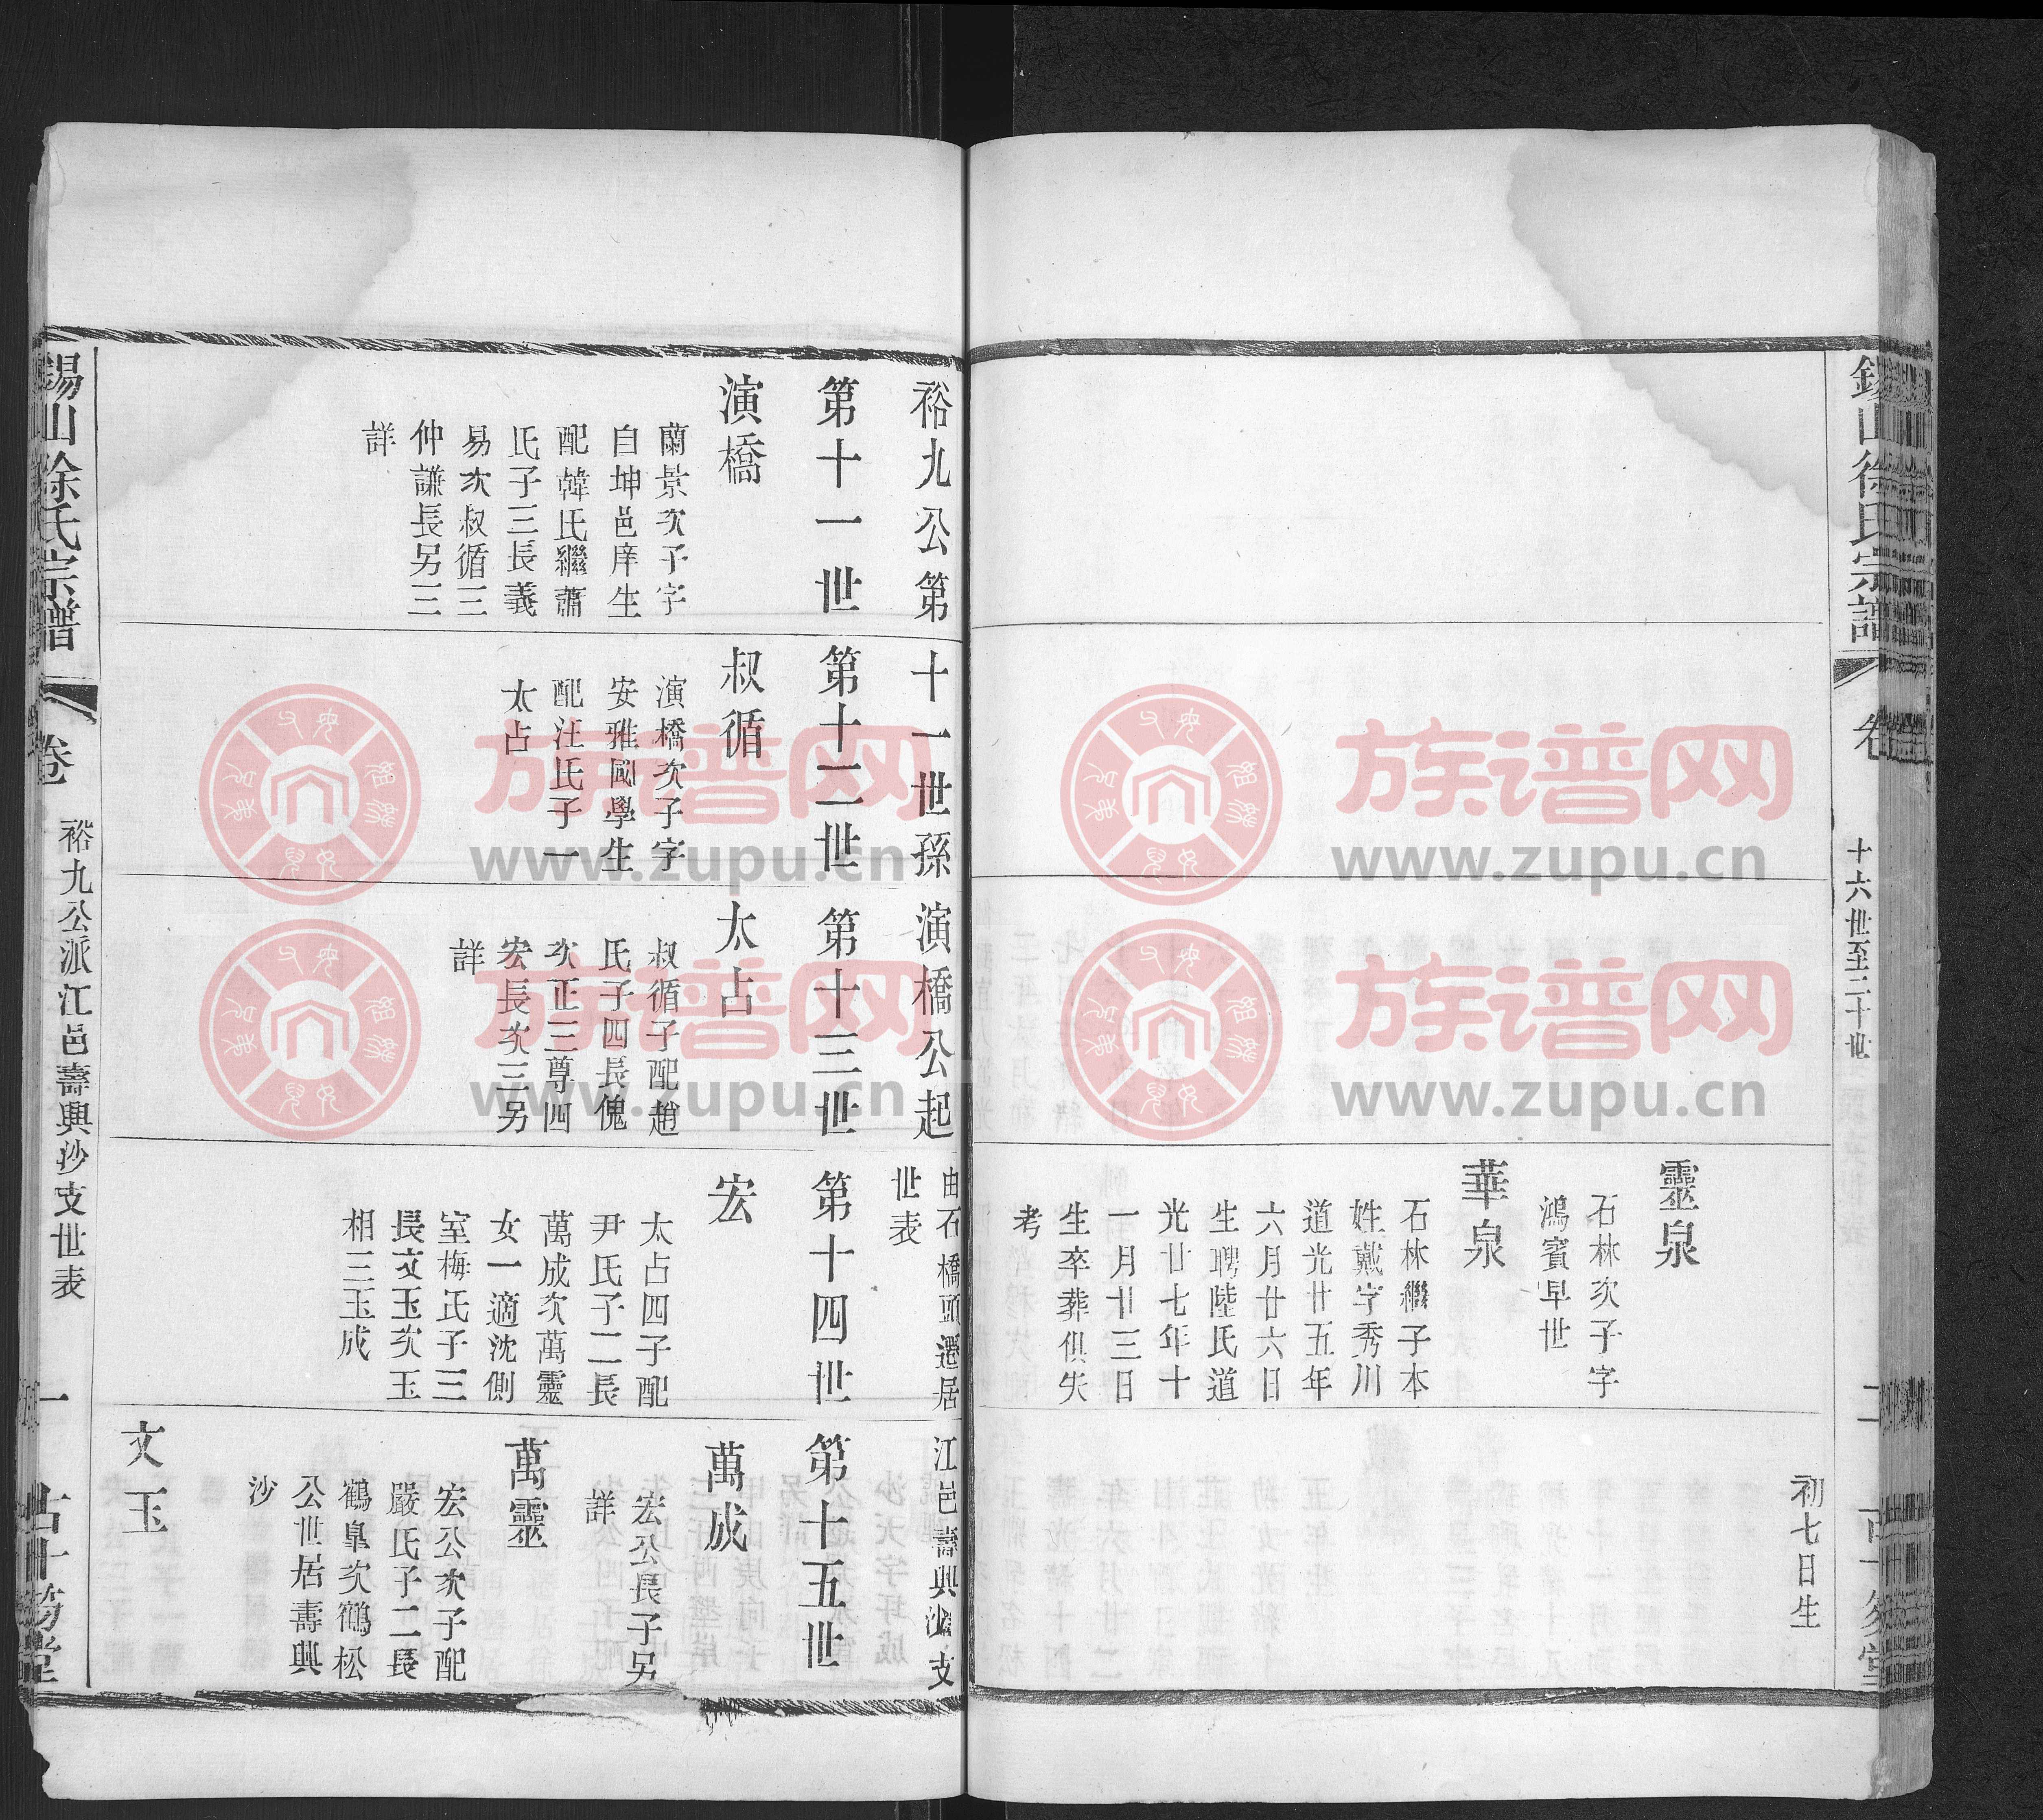 錫山徐氏宗譜
卷
十六世至二十世
初七日生
靈泉
石林次子字
鴻賓早世
華泉
石林繼子本
姓戴字秀川
道光廿五年
六月廿六日
生聘陸氏道
光廿七年十
一月廿三日
生卒葬俱失
考
裕九公第十一世孫演橋公起
由石橋頭遷居江邑壽興沙支
世表
第十一世
第十二世
第十三世
第十四世
第十五世
演橋
蘭景次子字
自坤邑庠生
配韓氏繼蕭
氏子三長義
易次叔循三
仲謙長另三
詳
叔循
演橋次子字
安雅國學生
配汪氏子一
太占
太占
叔循子配趙
氏子四長傀
次正三尊四
宏長次三另
詳
宏
太占四子配
尹氏子二長
萬成次萬靈
女一適沈側
室梅氏子三
長文玉次玉
相三玉成
萬成
宏公長子另
詳
萬靈
宏公次子配
嚴氏子二長
鶴臯次鶴松
公世居壽興
沙
文玉
錫山徐氏宗譜
卷
裕九公派江邑壽興沙支世表
一
族谱网
www.zupu.cn
族谱网
www.zupu.cn
族谱网
www.zupu.cn
族谱网
www.zupu.cn